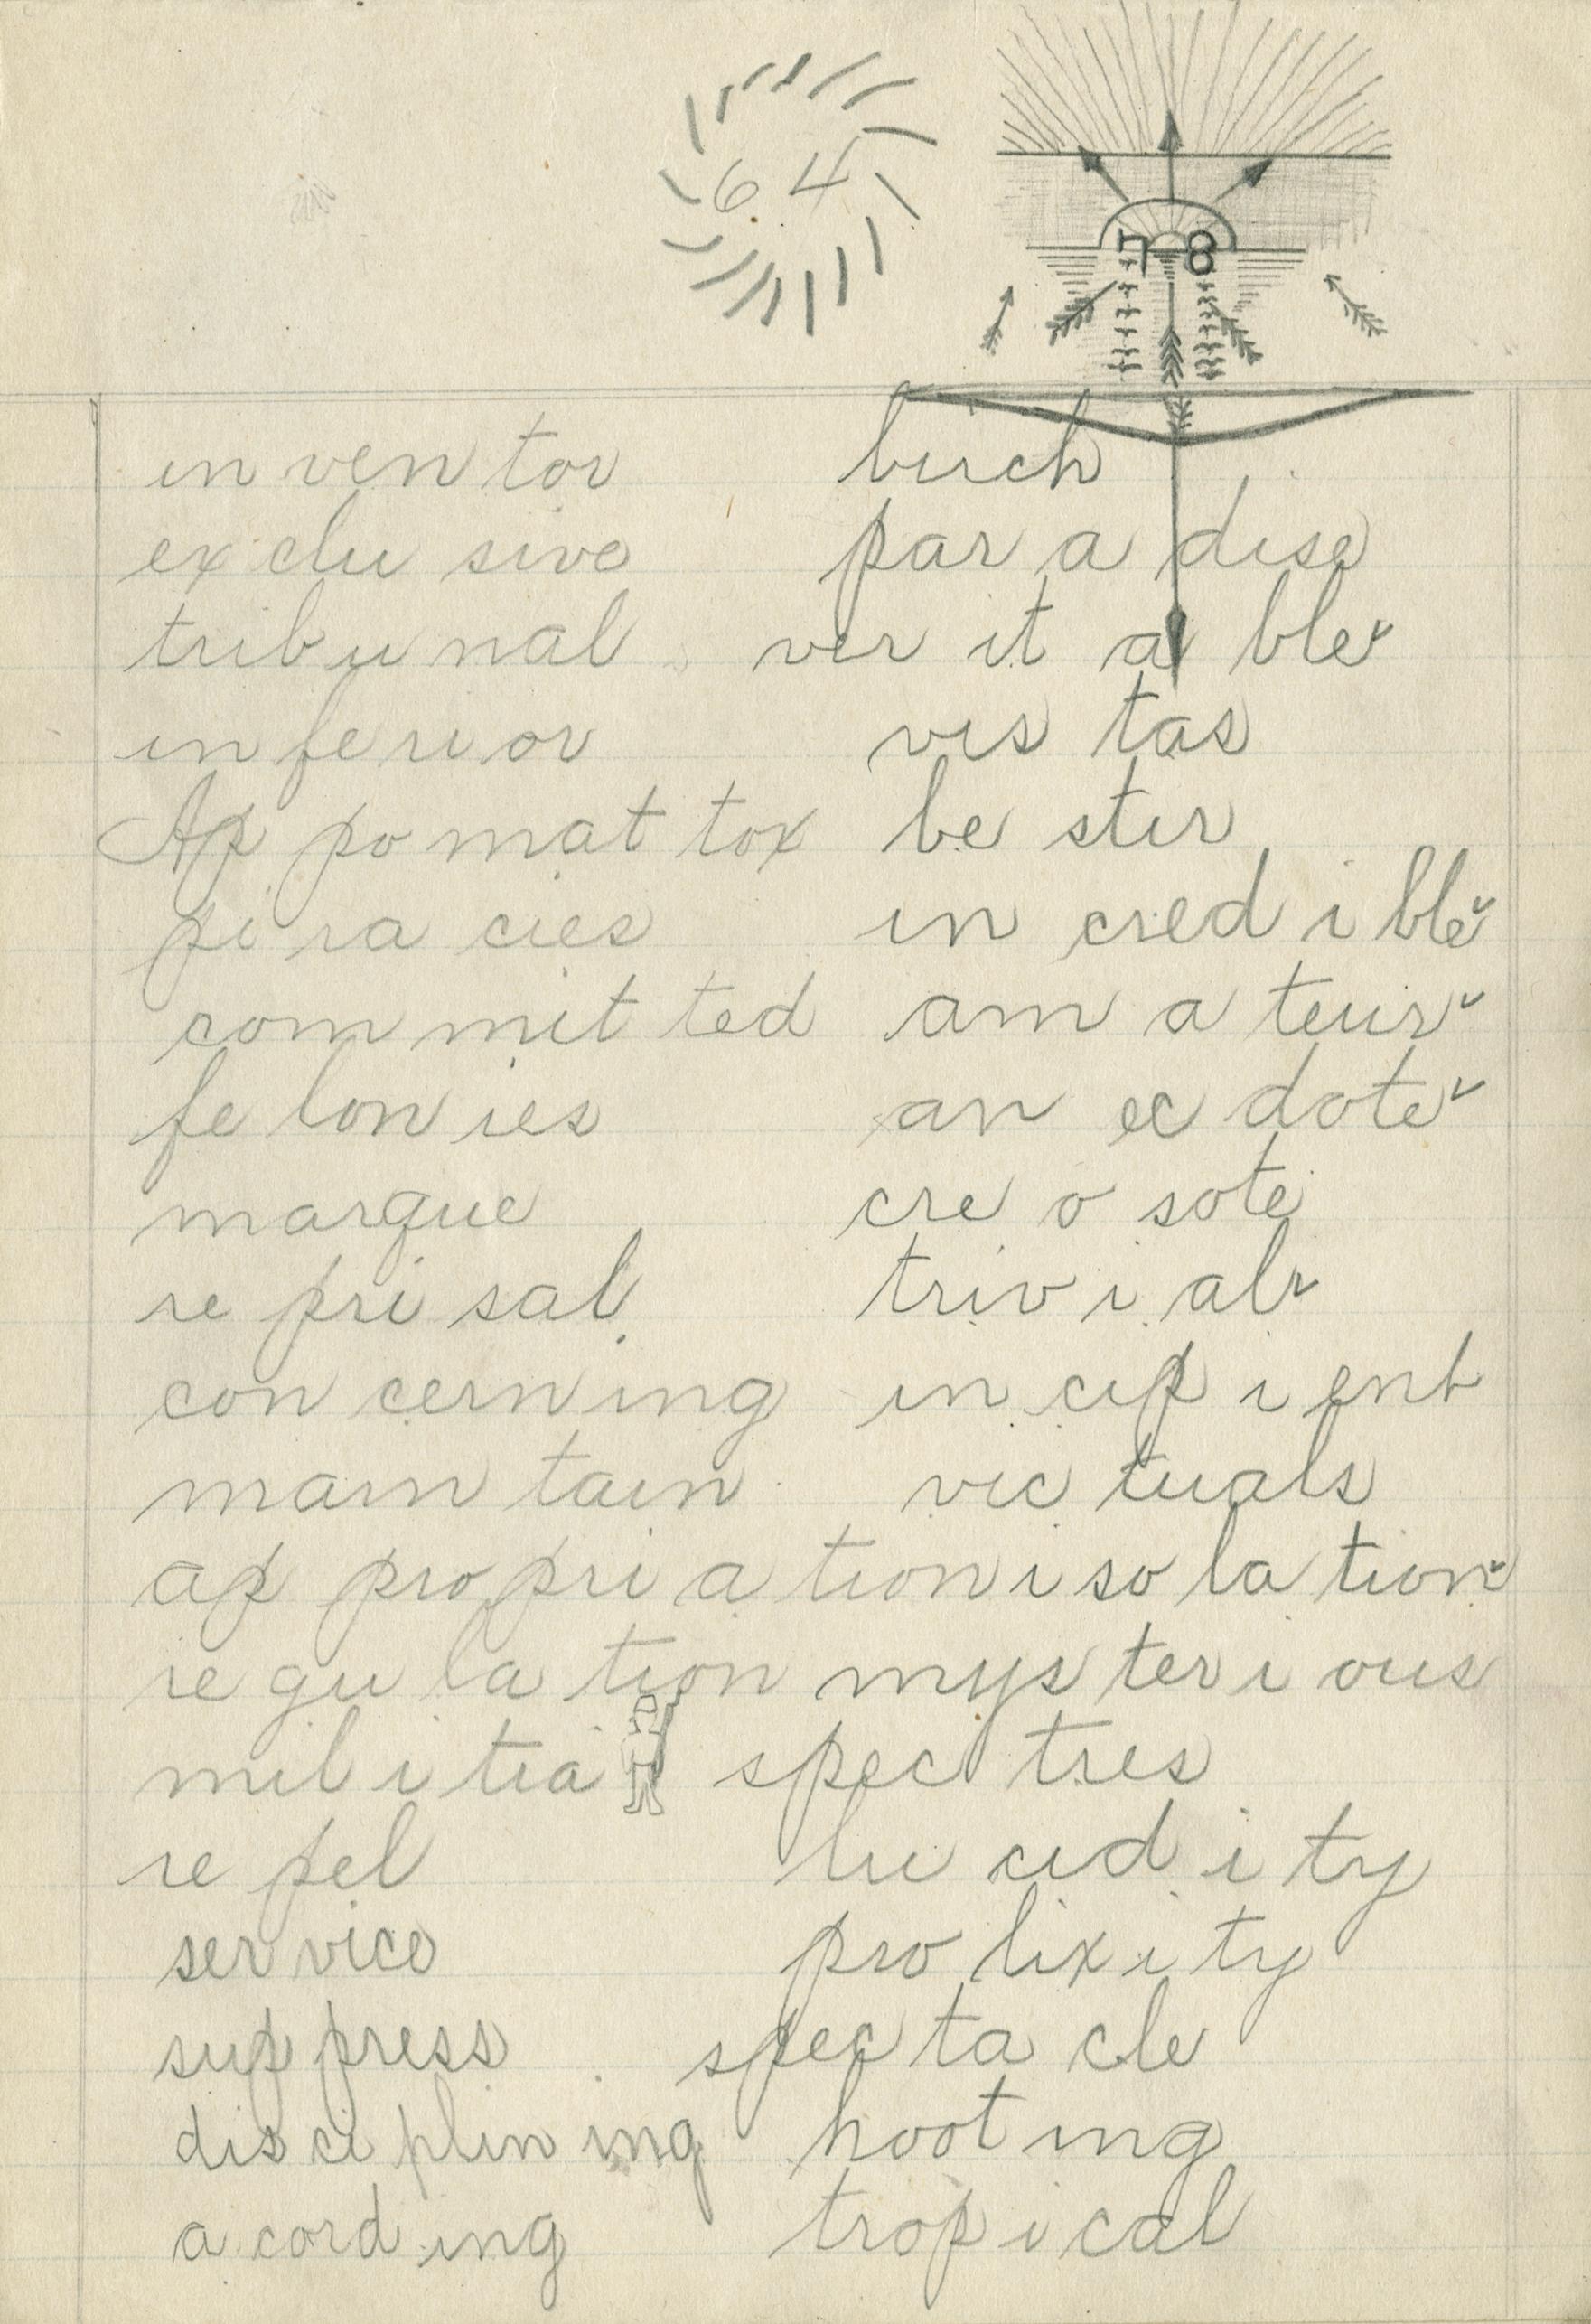 64
78
in ven tor birch
ex clu sive par a dise
trib u nal ver it a ble
in fe ri or vis tas
Ap po mat tox be stir
pi ra cies in cred i ble
com mit ted am a teur
fe lon ies an ec dote
marque cre o sote
re pri sal triv i al
con cern ing in cip i ent
main tain vic tuals
ap pro pri a tion i so la tion
re gu la tion mys ter i ous
mil i tia spec tres
re pel lu cid i ty
ser vice pro lix i ty
sup press spec ta cle
dis ci plin ing hoot ing
a cord ing trop i cal